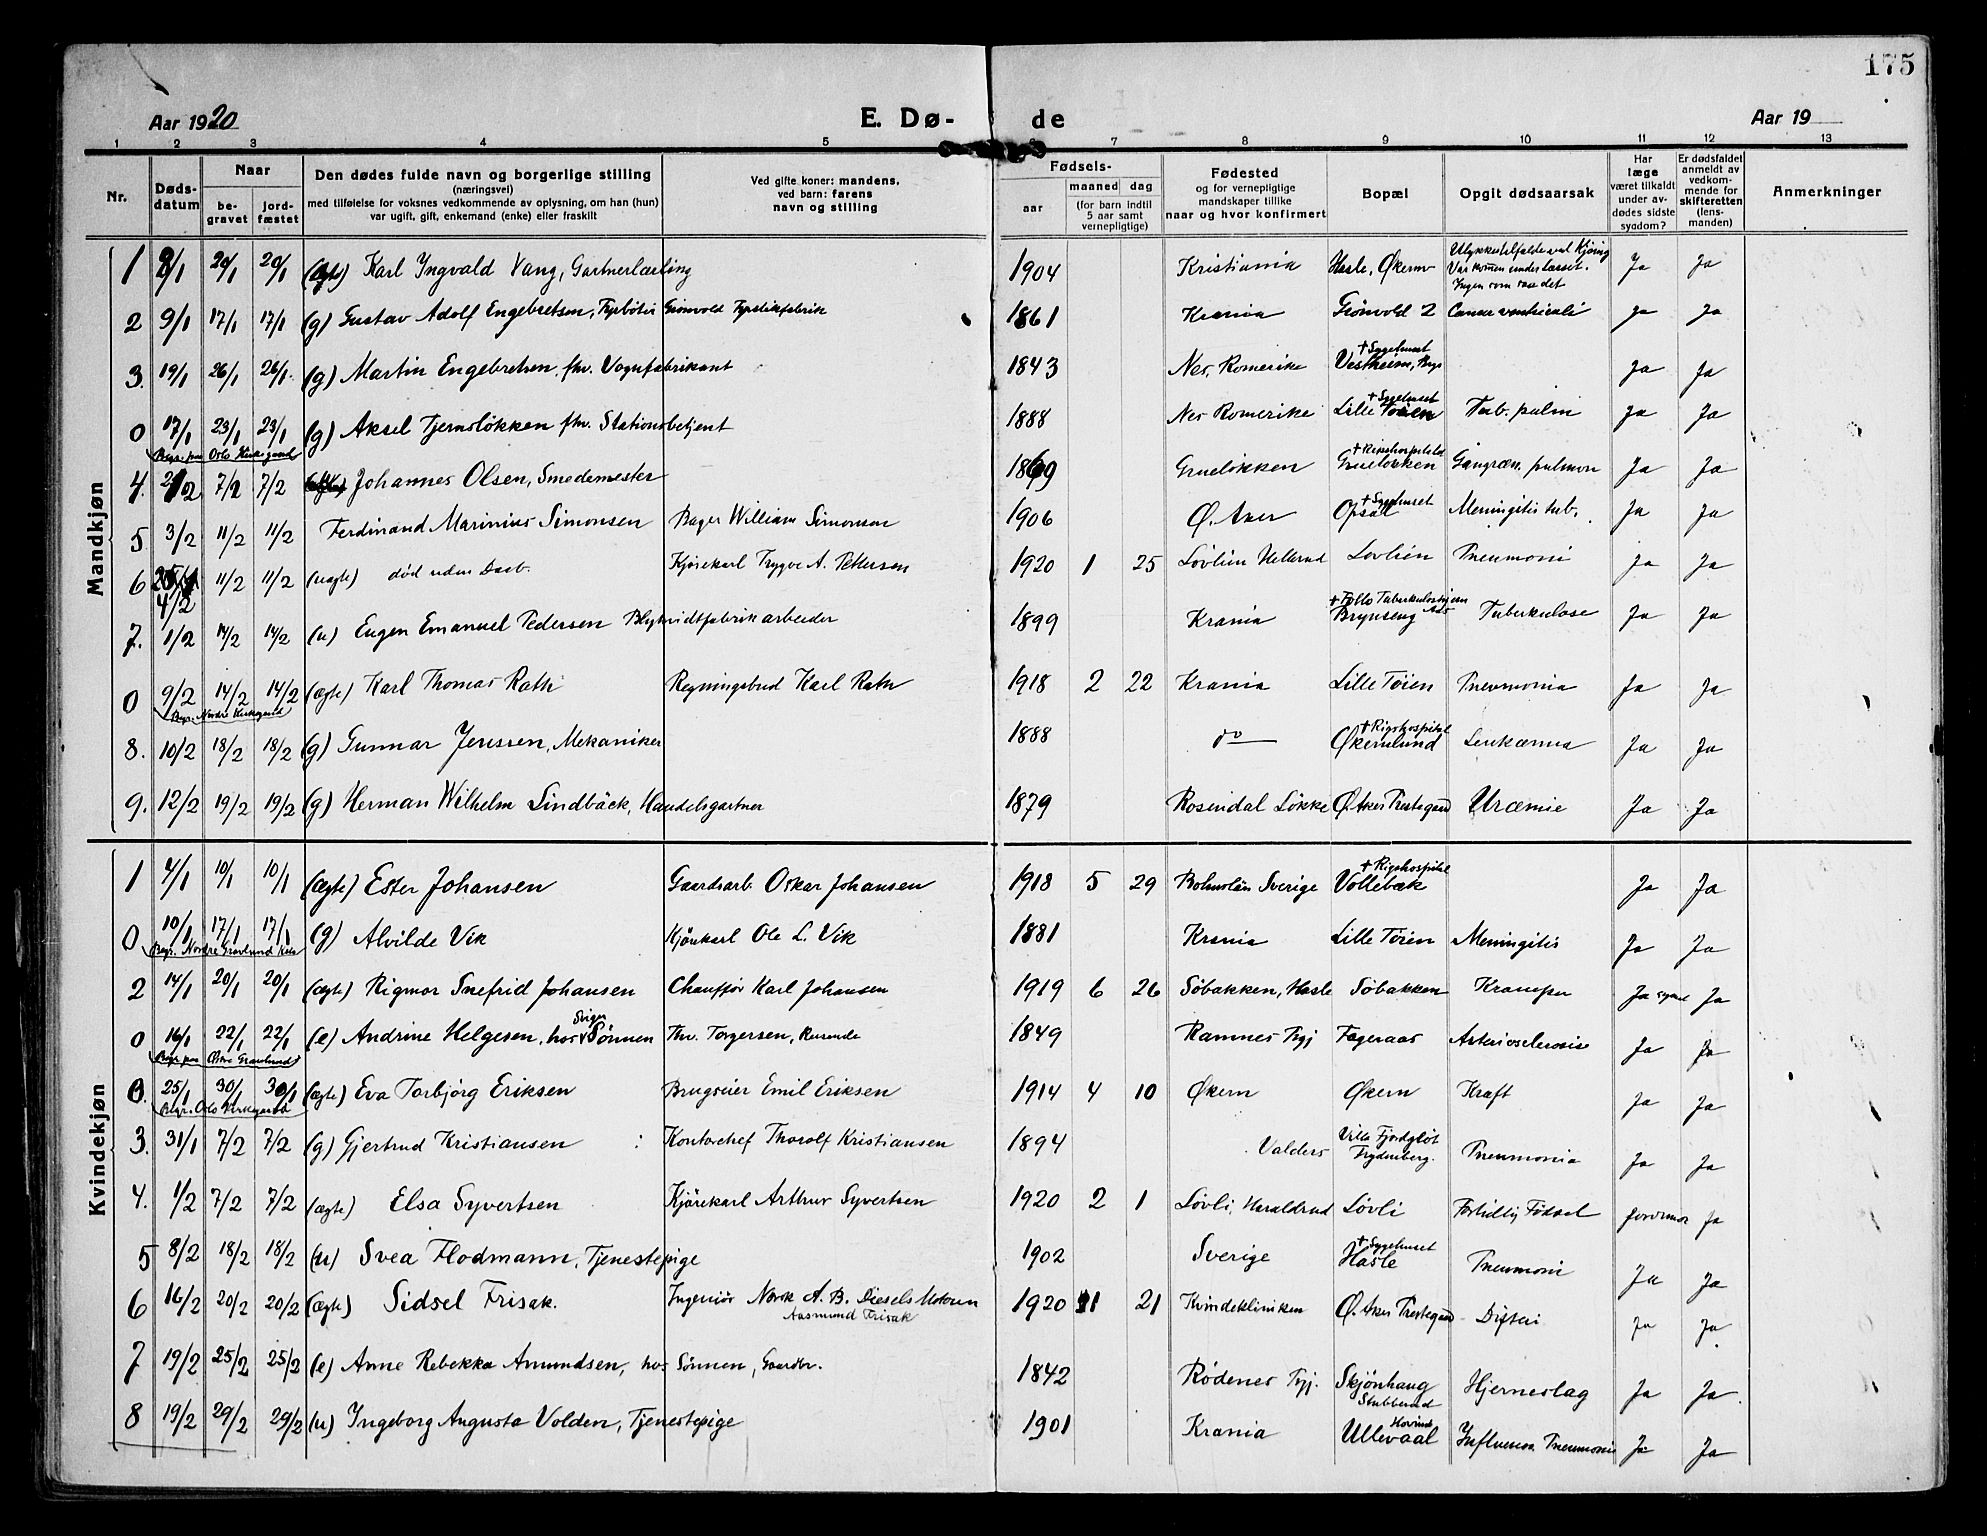 175
Aar 1920 E. Dø- de Aar 19
1 2 3 4 5 7 8 9 10 11 12 13
Nr. Døds-datum Naar be-gravet jord-fæstet Den dødes fulde navn og borgerlige stilling (næringsvei) med tilføielse for voksnes vedkommende av oplysning, om han (hun) var ugift, gift, enkemand (enke) eller fraskilt Ved gifte koner: mandens, ved barn: farens navn og stilling Fødsels- aar maaned dag (for barn indtil 5 aar samt vernepligtige) Fødested og for vernepligtige mandskaper tillike naar og hvor konfirmert Bopæl Opgit dødsaarsak Har læge været tilkaldt under av-dødes sidste sygdom? Er dødsfaldet anmeldt av vedkom-mende for skifteretten (lens-manden) Anmerkninger
Mandkjøn
1 2/1 20/1 20/1 (ægte) Karl Ingvald Vang, Gartnerlærling 1904 Kristiania Hasle, Økern Ulykkestilfælde ved Kjøring Var kommen under læsset. Ingen som saae det Ja Ja
2 9/1 17/1 17/1 (g) Gustav Adolf Engebretsen, Fyrbøter Grönvold Fyrstikfabrik 1861 Krania Grönvold 2 Cancer ventriculi Ja Ja
3. 19/1 26/1 26/1 (g) Martin Engebretsen fhv. Vognfabrikant 1843 Nes, Romerike + Sygehuset Vestheim, Bryn Ja Ja
0 17/1 23/1 23/1 (g) Aksel Tjernsløkken fhv. Stationsbetjent 1888 Nes Romerike + Sygehuset Lille Töien Tub. pulm Ja Ja
Begr. paa Oslo Kirkegaard
4. 2/2 7/2 7/2 Johannes Olsen, Smedemester 1869 Grueløkken + Rikshospitalet Grueløkken Gangræn. pulmon Ja Ja
5 3/2 11/2 11/2 Ferdinand Marinius Simonsen Bager William Simonsen 1906 Ø. Aker + Sygehuset Opsal Meningitis tub. Ja Ja
6 4/2 11/2 11/2 (uægte) död uden Daab. Kjørekarl Trygve A. Pettersen 1920 1 25 Løvlien Hellerud Løvlien Pneumoni Ja Ja
7. 1/2 14/2 14/2 (u) Eugen Emanuel Pedersen Blyhvidtfabrikarbeider 1899 Krania + Follo Tuberkulosehjem Aas Brynseng Tuberkulose Ja Ja
0 9/2 14/2 14/2 (ægte) Karl Thomas Rath Regningsbud Karl Rath 1918 2 22 Krania Lille Töien Pneumonia Ja Ja
Begr. Nordre Kirkegaard
8. 10/2 18/2 18/2 (g) Gunnar Jenssen, Mekaniker 1888 do + Rigshospitalet Økernlund Leukæmia Ja Ja
9. 12/2 19/2 19/2 (g) Herman Wilhelm Lindbäck, Handelsgartner 1879 Rosendal Løkke Ø. Aker Prestegaard Uræmie Ja Ja
Kvindekjøn
1 4/1 10/1 10/1 (ægte) Ester Johansen Gaardsarb. Oskar Johansen 1918 5 29 Bohuslän Sverige + Rigshospitalet Vollebæk Ja Ja
0 10/1 17/1 17/1 (g) Alvilde Vik Kjørekarl Ole L. Vik 1881 Krania Lille Töien Meningitis Ja Ja
Begr. Nordre Gravlund
2 14/1 20/1 20/1 (ægte) Rigmor Snefrid Johansen Chauffør Karl Johansen 1919 6 26 Søbakken, Hasle Søbakken Kramper Ja Ja
0 16/1 22/1 22/1 (e) Andrine Helgesen, hos Svigersönnen Thv. Torgersen, Reisende 1849 Ramnes Fogeraas Arteriosclerosis Ja Ja
Begr. paa Østre Gravlund
0. 25/1 30/1 30/1 (ægte) Eva Torbjörg Eriksen Brugseier Emil Eriksen 1914 4 10 Økern Økern Kraft Ja Ja
Begr. Oslo Kirkegaard
3. 31/1 7/2 7/2 (g) Gjertrud Kristiansen Kontorchef Thorolf Kristiansen 1894 Valders Villa Fjordgløt Frydenberg. Pneumonia Ja Ja
4. 1/2 7/2 7/2 (ægte) Elsa Syvertsen Kjörekarl Arthur Syvertsen 1920 2 1 Løvli, Haraldrud Løvli Fortidlig Fødsel Jordemor Ja
5 8/2 18/2 18/2 (u) Svea Flodmann, Tjenestepige 1902 Sverige + Sygehuset Hasle Pneumoni Ja Ja
6 16/2 20/2 20/2 (ægte) Sidsel Frisak. Ingeniör Norsk A. B. Diesels Motoren Aasmund Frisak 1920 1 21 Kvindekliniken Ø. Aker Prestegaard Difteri Ja Ja
7 19/2 25/2 25/2 (e) Anne Rebekka Amundsen, hos Sönnen, Gaardbr. 1842 Rödenes Skjönhaug Stubberud Hjerneslag Ja Ja
8 19/2 29/2 29/2 (u) Ingeborg Augusta Volden, Tjenestepige 1901 Krania Hovind Ullevaal Influensa Pneumoni Ja Ja